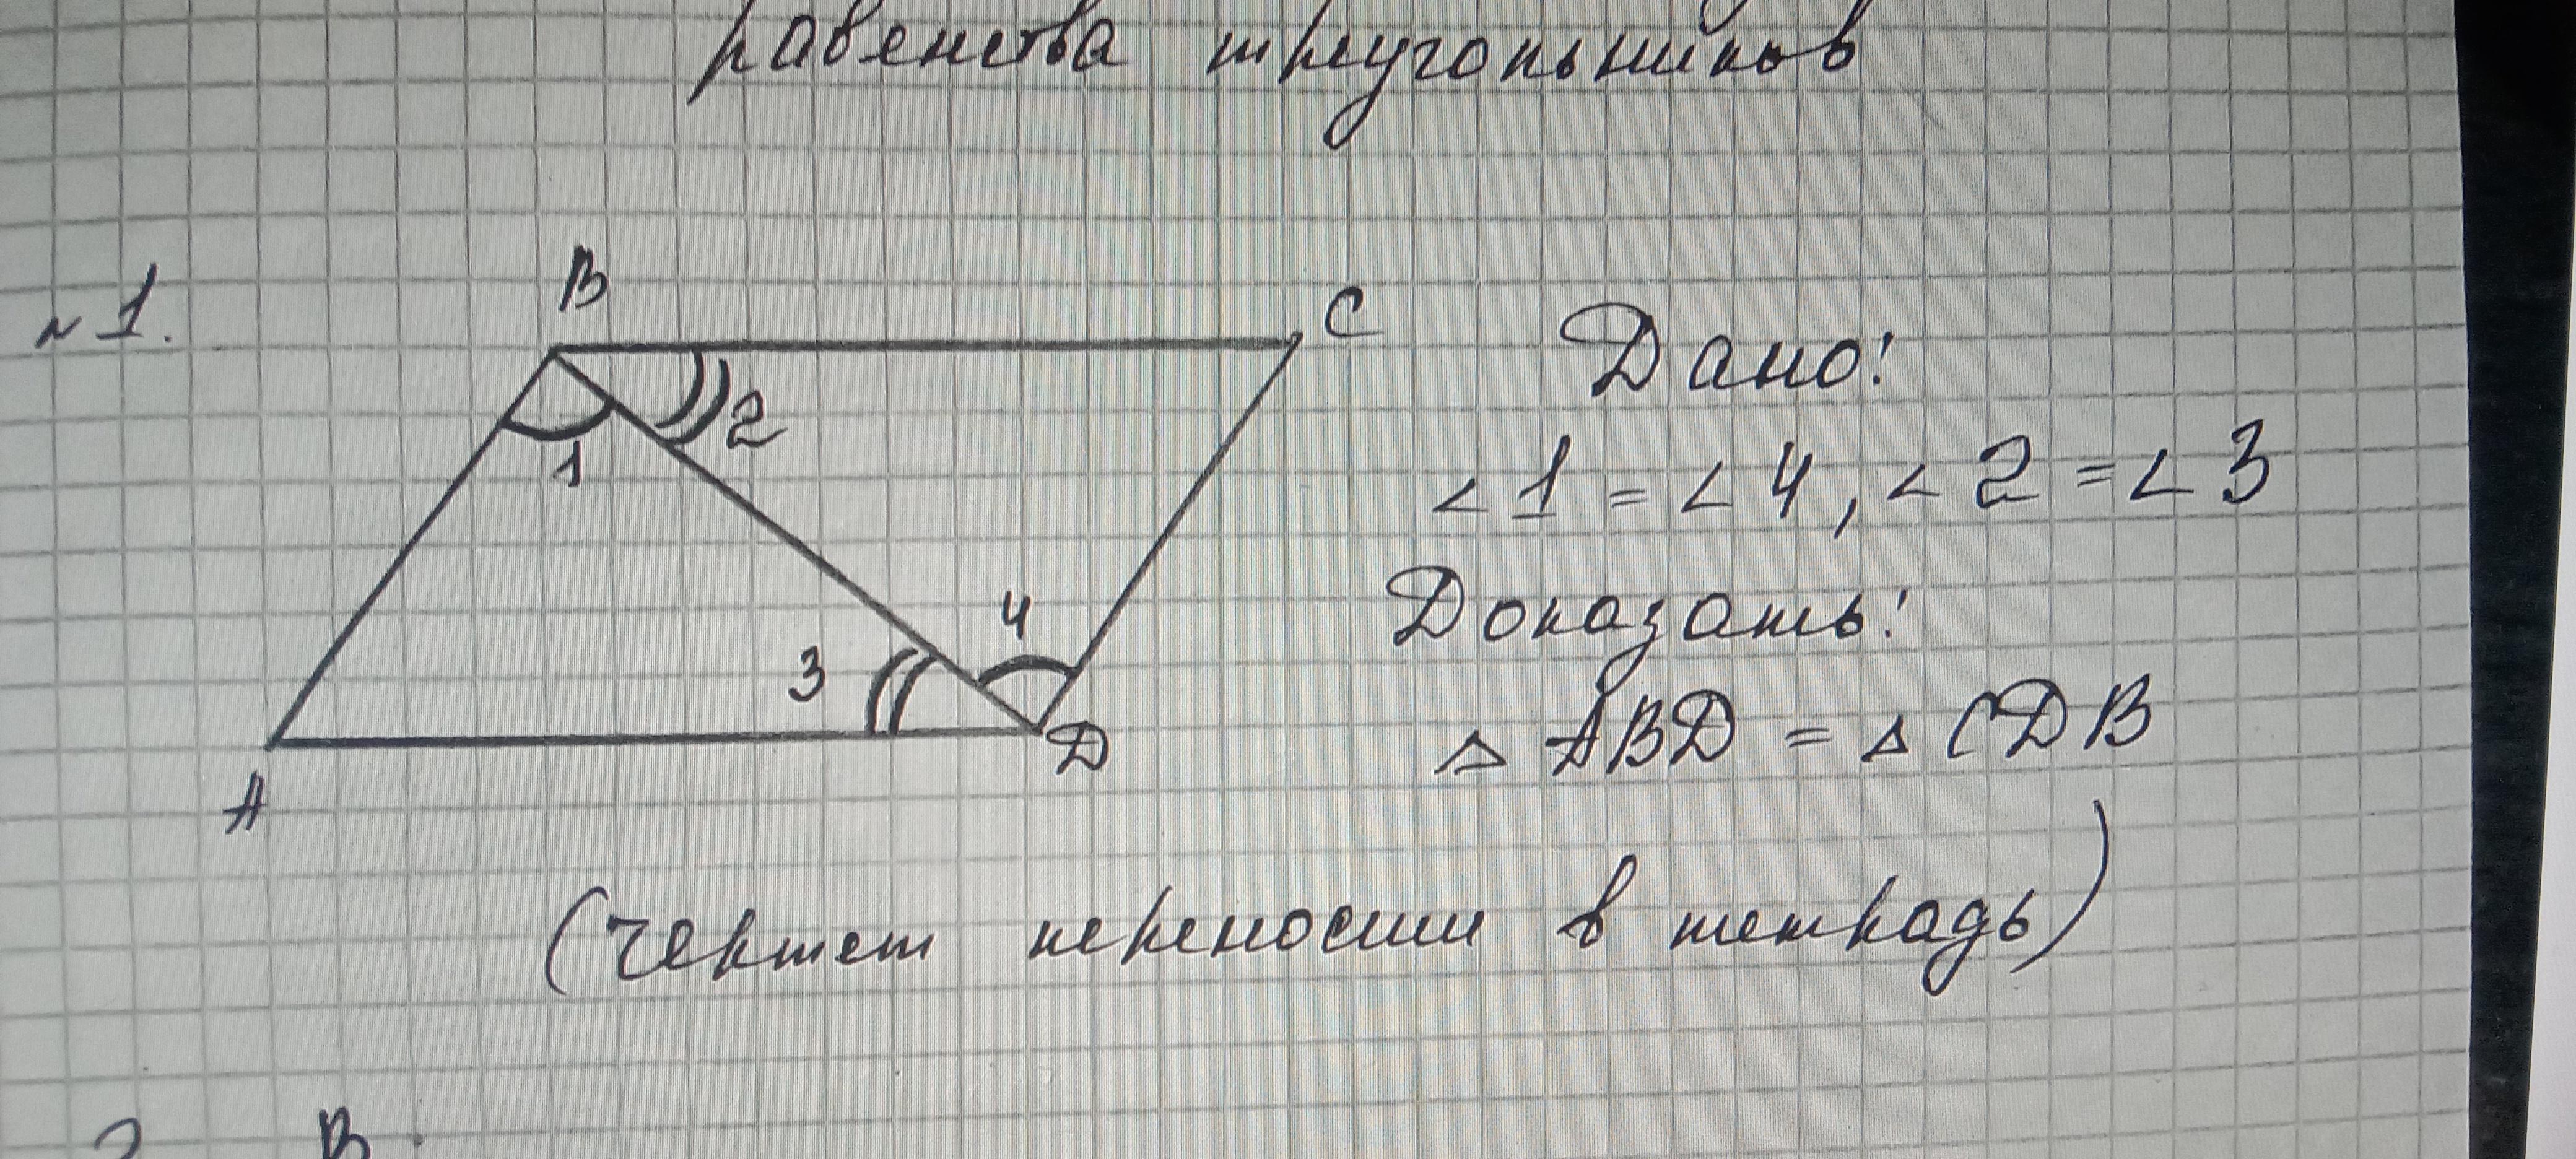 равенства треугольников
№1.
B
C
1
2
3
4
A
D
Дано:
∠1 = ∠4, ∠2 = ∠3
Доказать:
△ABD = △CDB
(Чертеж переносим в тетрадь)
B